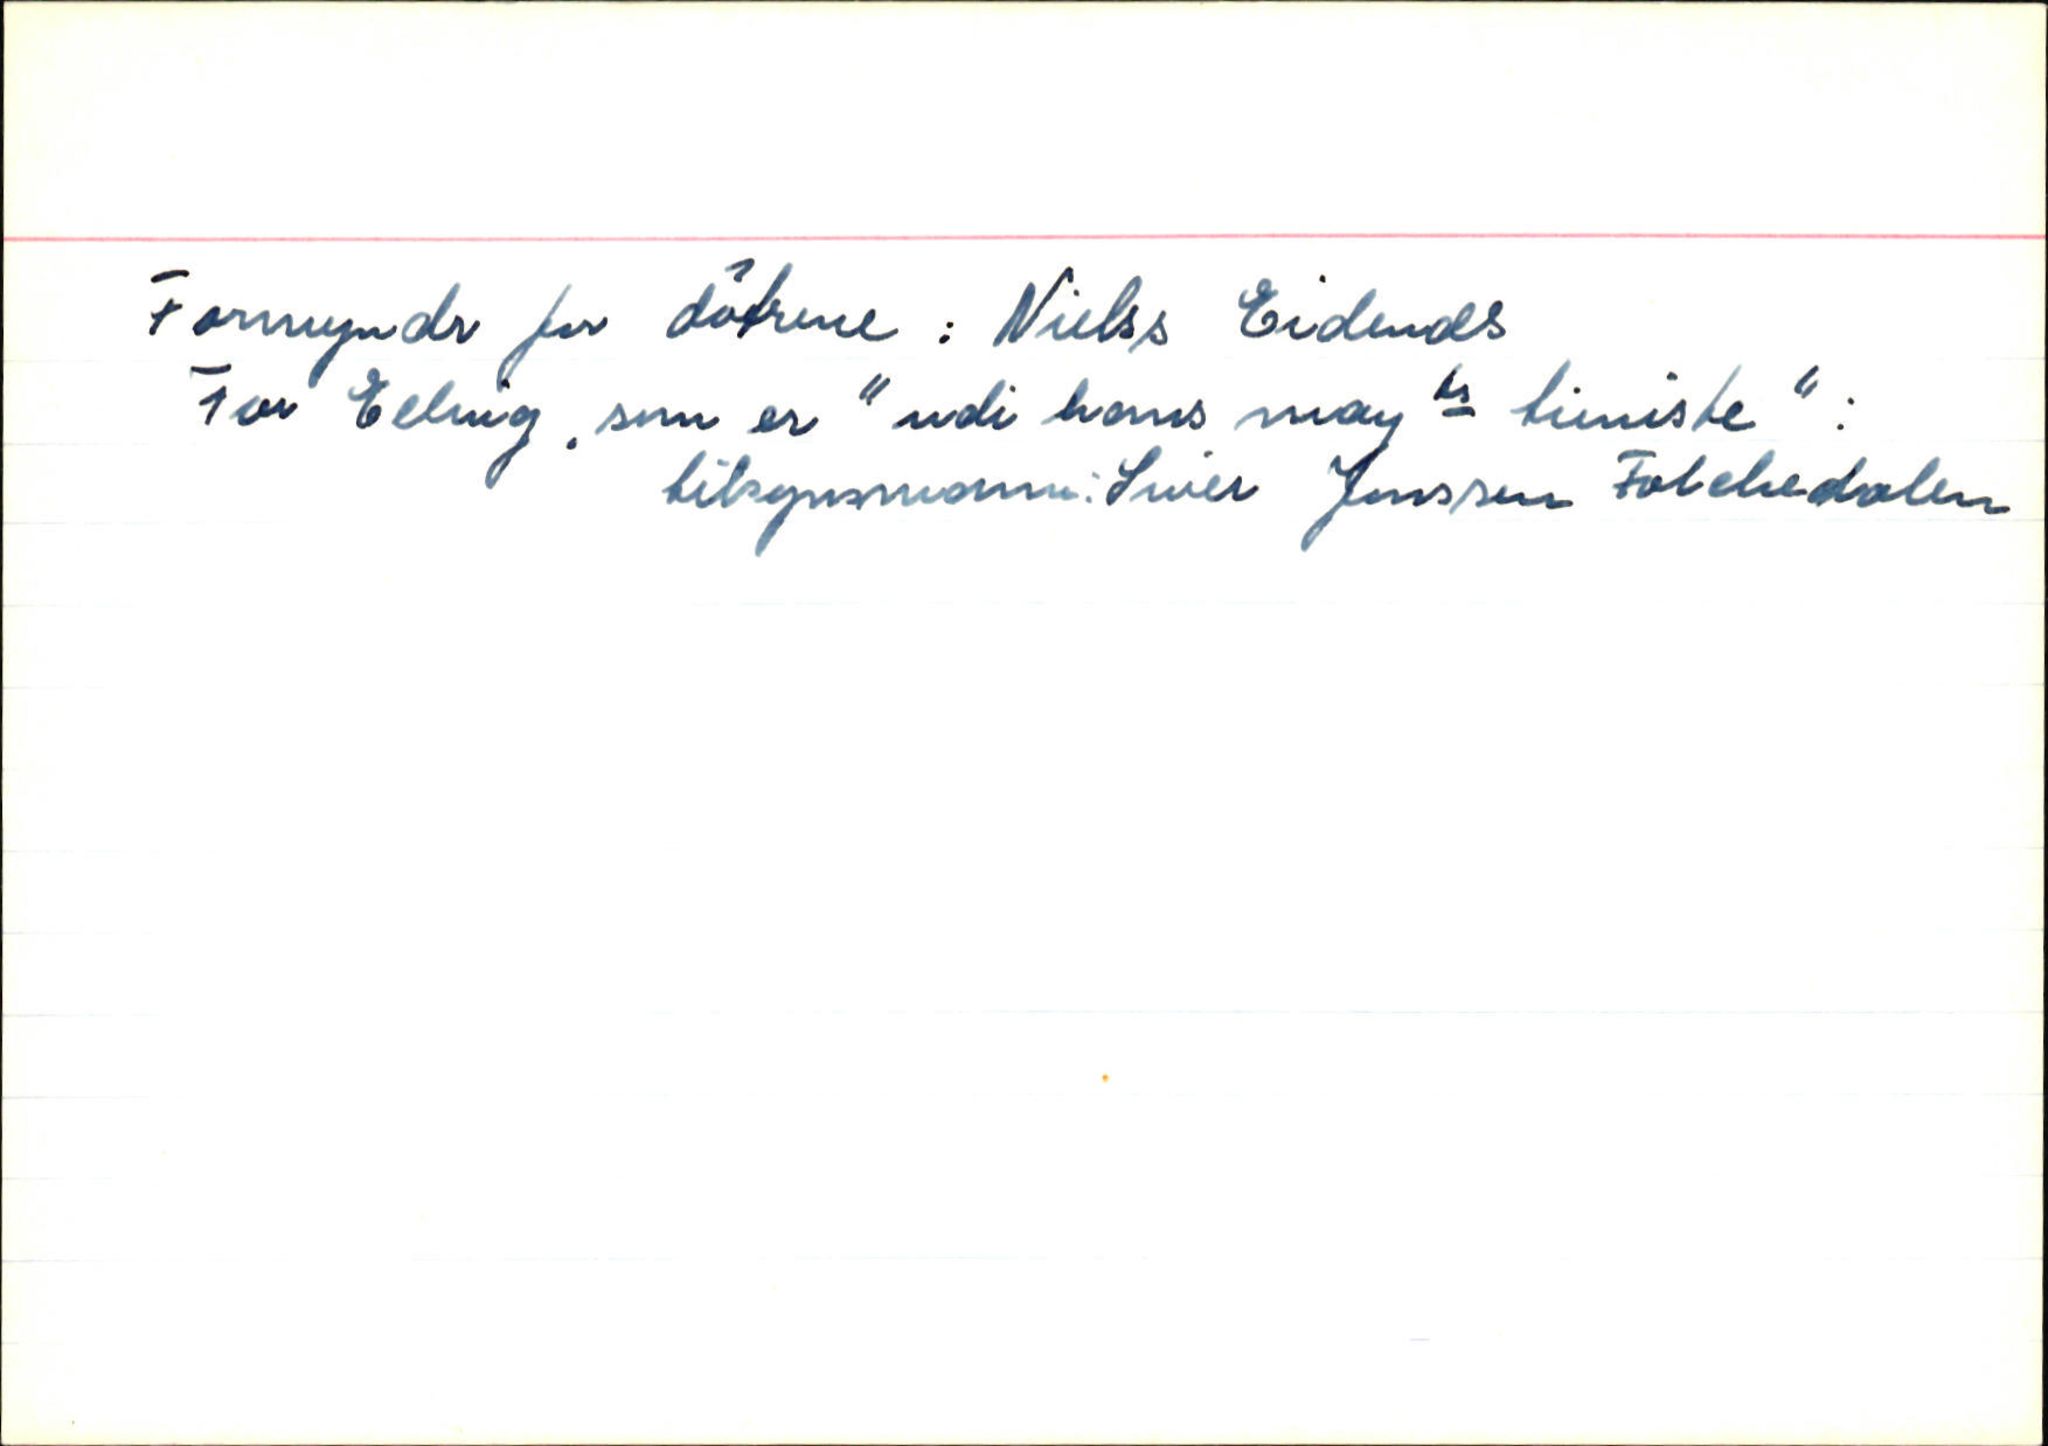 Formyndr for døtrene : Nielss Eidendes
For Elling, som er "udi hans may ts tieniste" :
tilsynsmann: Siver Jenssen Folchedalen